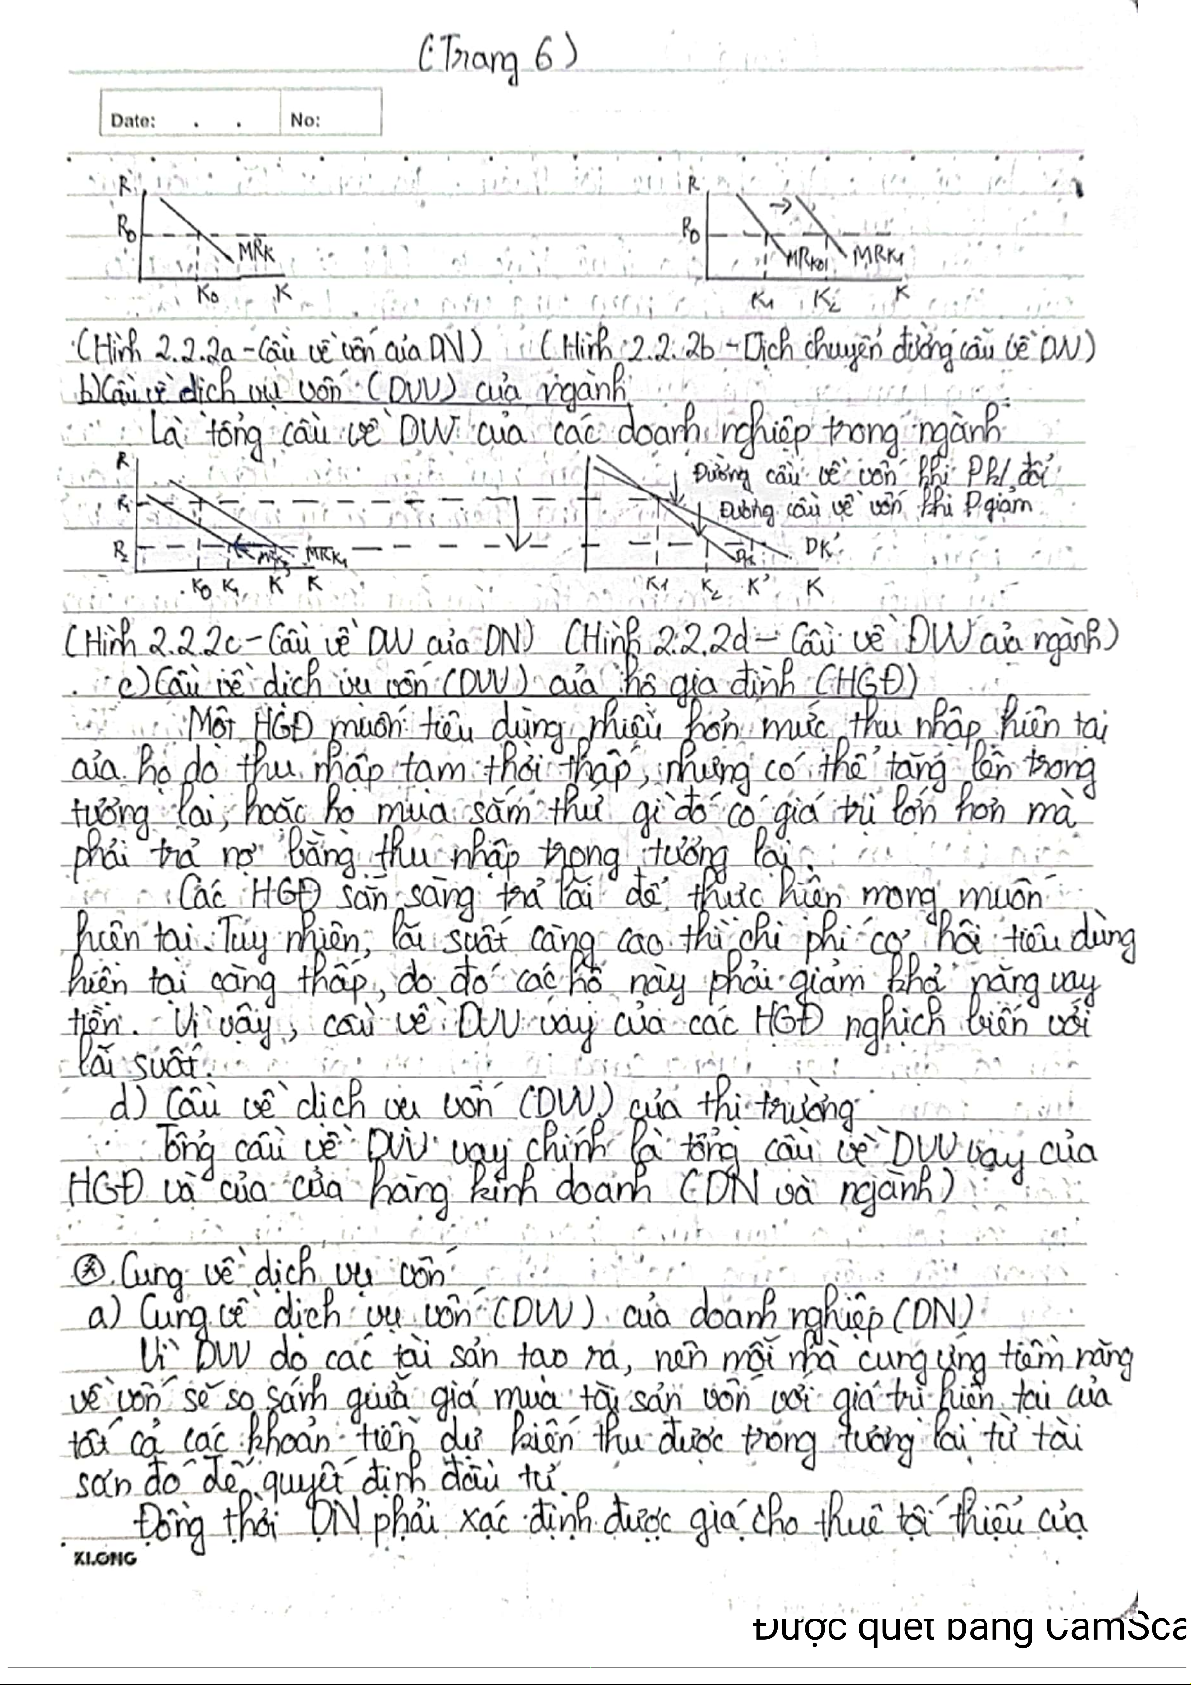 (Trang 6)
Date: . . No:
R R
R0 R0
MRK MRK0 MRK1
K0 K K1 K2 K
(Hình 2.2.2a - Cầu về vốn của DN) (Hình 2.2.2b - Dịch chuyển đường cầu về DVV)
b) Cầu về dịch vụ vốn (DVV) của ngành
Là tổng cầu về DVV của các doanh nghiệp trong ngành
R Đường cầu về vốn khi P kl đổi
R1 Đường cầu về vốn khi P giảm
R2 MRK1 DK'
K0 K1 K' K K1 K2 K' K
(Hình 2.2.2c - Cầu về DVV của DN) (Hình 2.2.2d - Cầu về DVV của ngành)
c) Cầu về dịch vụ vốn (DVV) của hộ gia đình (HGĐ)
Một HGĐ muốn tiêu dùng nhiều hơn mức thu nhập hiện tại
của họ do thu nhập tạm thời thấp, nhưng có thể tăng lên trong
tương lai, hoặc họ mua sắm thứ gì đó có giá trị lớn hơn mà
phải trả nợ bằng thu nhập trong tương lai.
Các HGĐ sẵn sàng trả lãi để thực hiện mong muốn
hiện tại. Tuy nhiên, lãi suất càng cao thì chi phí cơ hội tiêu dùng
hiện tại càng thấp, do đó các hộ này phải giảm khả năng vay
tiền. Vì vậy, cầu về DVV vay của các HGĐ nghịch biến với
lãi suất.
d) Cầu về dịch vụ vốn (DVV) của thị trường
Tổng cầu về DVV vay chính là tổng cầu về DVV vay của
HGĐ và của cửa hàng kinh doanh (DN và ngành)
Cung về dịch vụ vốn
a) Cung về dịch vụ vốn (DVV) của doanh nghiệp (DN)
Vì DVV do các tài sản tạo ra, nên mỗi nhà cung ứng tiềm năng
về vốn sẽ so sánh giữa giá mua tài sản vốn với giá trị hiện tại của
tất cả các khoản tiền dự kiến thu được trong tương lai từ tài
sản đó để quyết định đầu tư.
Đồng thời DN phải xác định được giá cho thuê tối thiểu của
KLONG
Được quét bằng CamSca